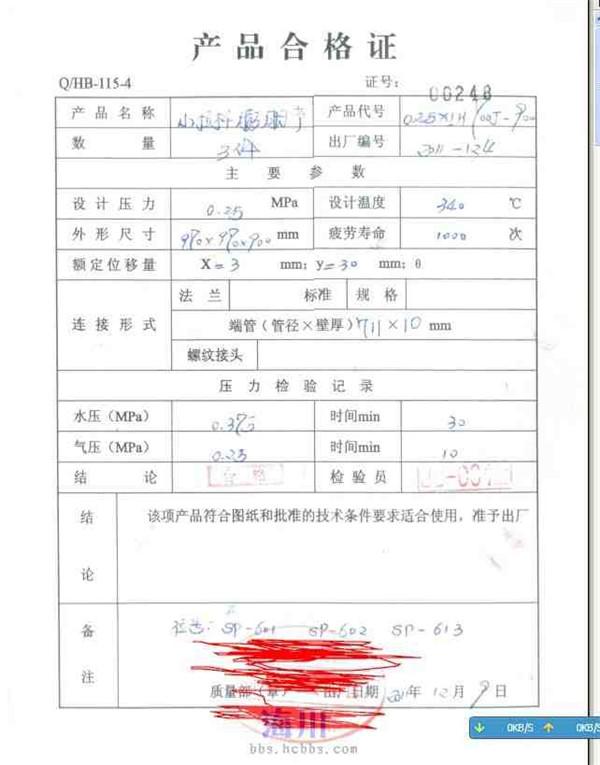 产品合格证
Q/HB-115-4 证号: 00248
产品名称 产品代号
数量 3件 出厂编号 2011-124
主要参数
设计压力 0.25 MPa 设计温度 340 ℃
外形尺寸 970×970×900 mm 疲劳寿命 1000 次
额定位移量 X=3 mm; y=30 mm; θ
连接形式 法兰 标准 规格
端管(管径×壁厚)711×10 mm
螺纹接头
压力检验记录
水压(MPa) 0.375 时间min 30
气压(MPa) 0.25 时间min 10
结论 合格 检验员
结论 该项产品符合图纸和批准的技术条件要求适合使用,准予出厂
备注 位号: SP-601 SP-602 SP-613
质量部(章) 出厂日期 2011年12月9日
海川
bbs.hcbbs.com
0KB/S 0KB/S